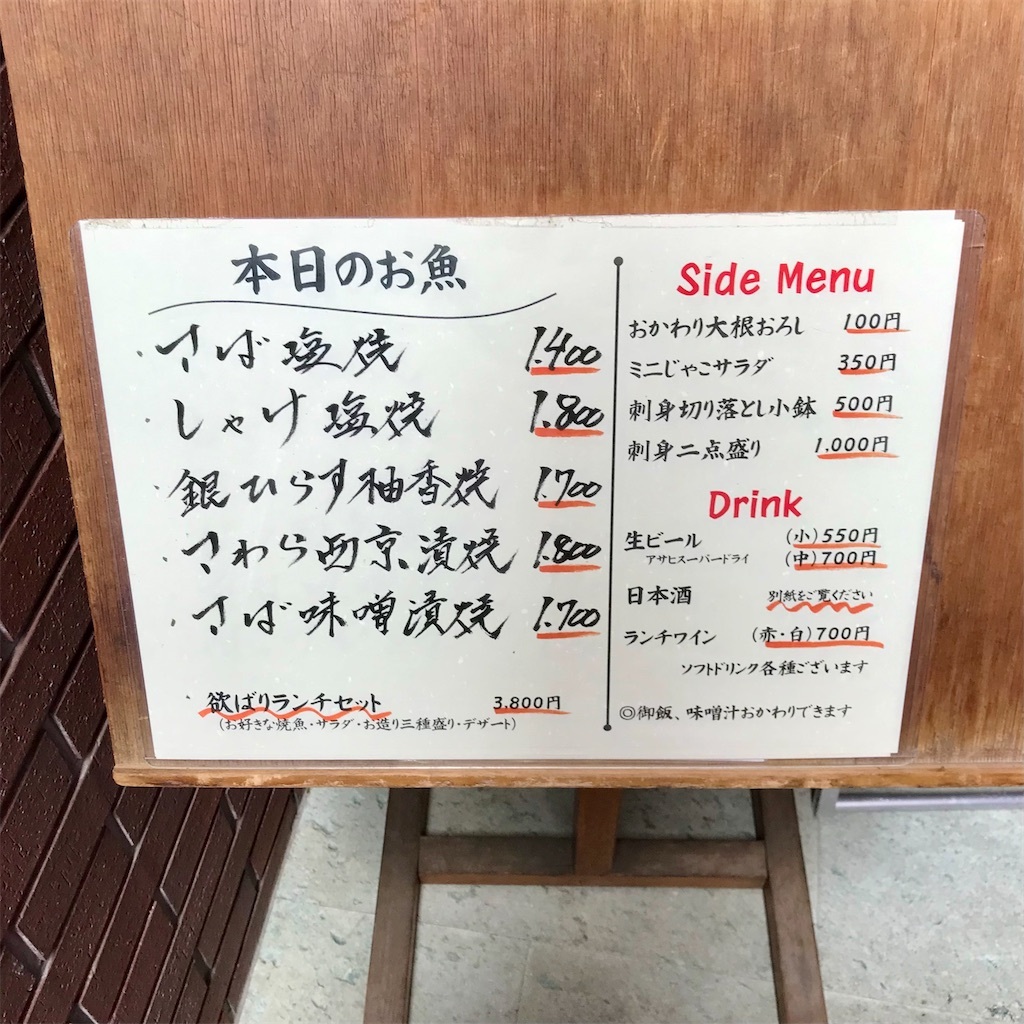 本日のお魚
・さば塩焼 1.400
・しゃけ塩焼 1.800
・銀ひらす柚香焼 1.700
・さわら西京漬焼 1.800
・さば味噌漬焼 1.700
欲ばりランチセット 3.800円
(お好きな焼魚・サラダ・お造り三種盛り・デザート)
Side Menu
おかわり大根おろし 100円
ミニじゃこサラダ 350円
刺身切り落とし小鉢 500円
刺身二点盛り 1,000円
Drink
生ビール (小)550円
アサヒスーパードライ (中)700円
日本酒 別紙をご覧ください
ランチワイン (赤・白)700円
ソフトドリンク各種ございます
◎御飯、味噌汁おかわりできます